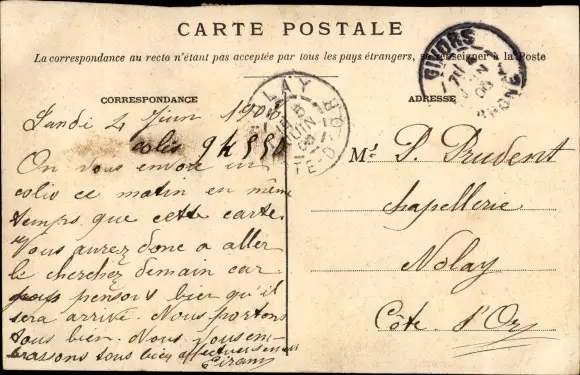 CARTE POSTALE
La correspondance au recto n'étant pas acceptée par tous les pays étrangers, se renseigner à la Poste
CORRESPONDANCE
ADRESSE
GIVORS
RHONE
NOLAY
COTE D'OR
Lundi 4 Juin 1906
colis 94550
On vous envoie un
colis ce matin en même
temps que cette carte.
Vous aurez donc a aller
le cherchez demain car
pensons bien qu'il
sera arrivé. Nous portons
tous bien. Nous vous em
brassons tous bien affectueusement
Mr P. Prudent
Chapellerie
Nolay
Côte d'Or